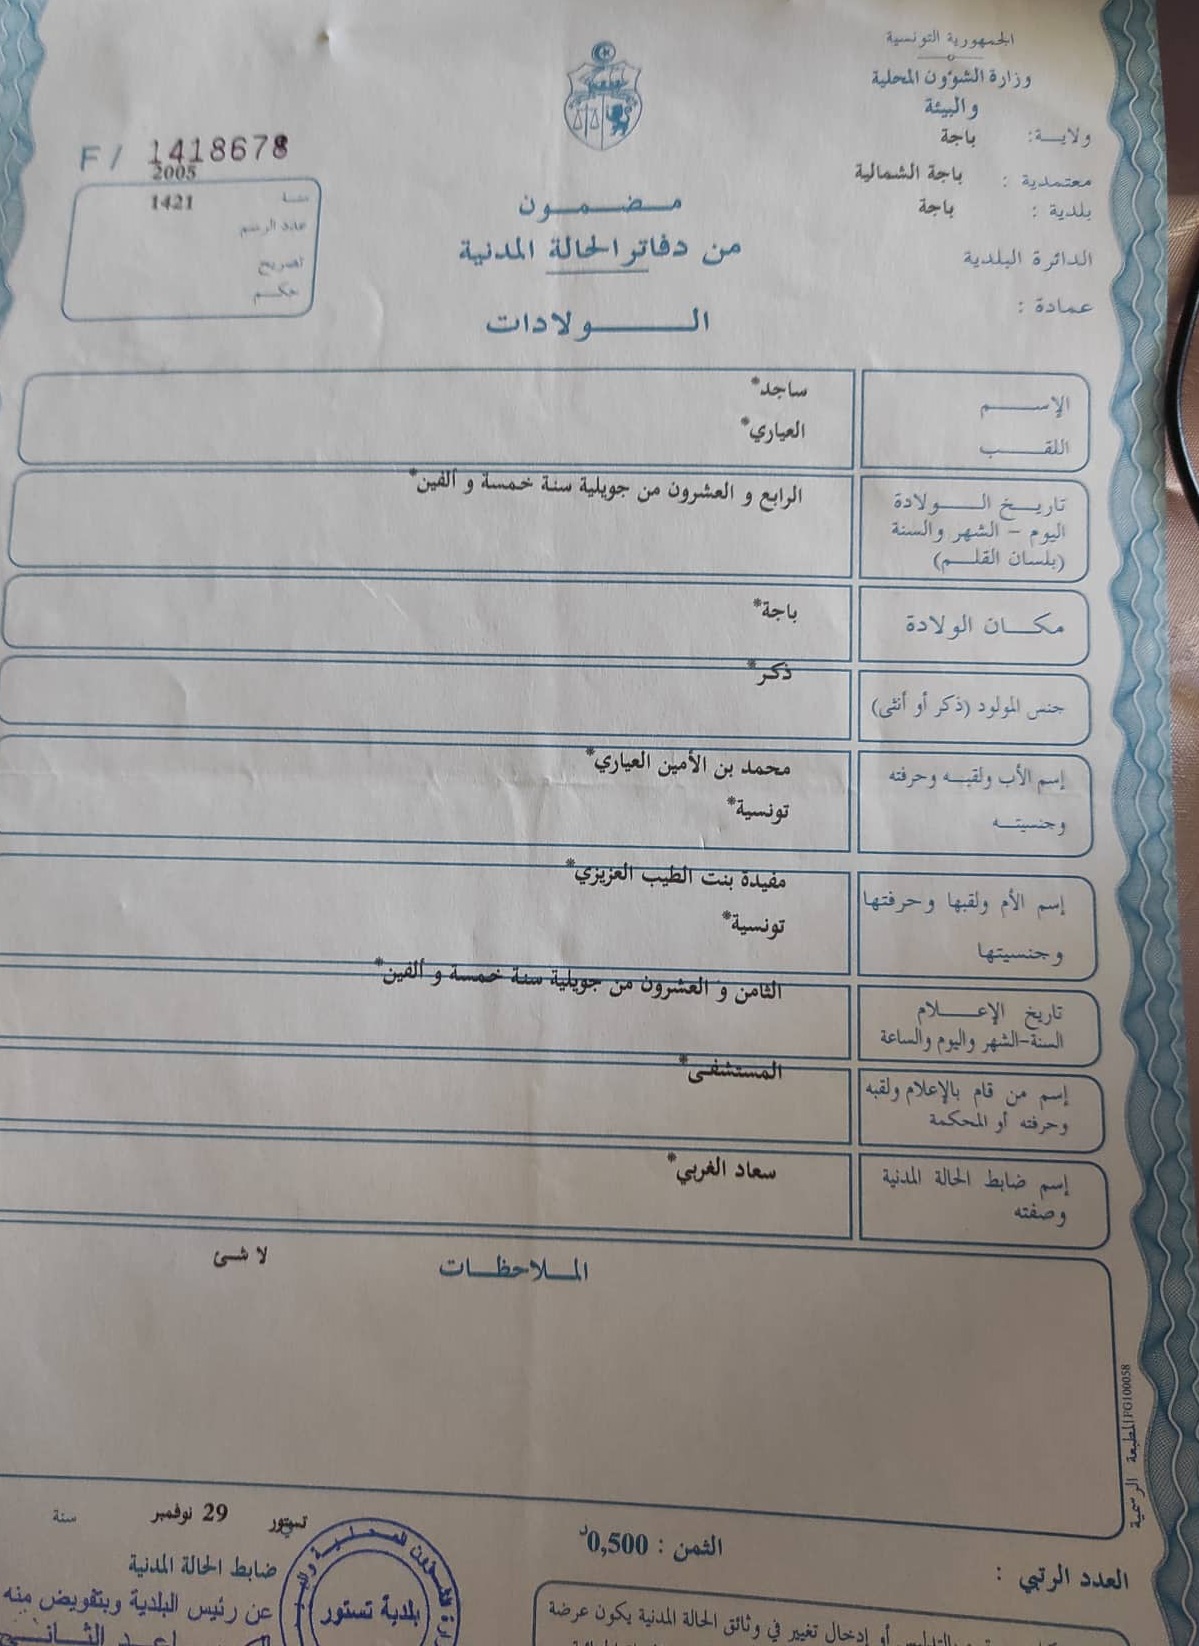 الجمهورية التونسية
وزارة الشؤون المحلية
والبيئة
ولاية: باجة
معتمدية : باجة الشمالية
بلدية : باجة
الدائرة البلدية
عمادة :
F / 1418678
2005
1421
عدد الرسم
تصريح
حكم
مضمون
من دفاتر الحالة المدنية
الولادات
الإسم ساجد*
اللقب العياري*
تاريخ الولادة الرابع و العشرون من جويلية سنة خمسة و ألفين*
اليوم - الشهر والسنة
(بلسان القلم)
مكان الولادة باجة*
جنس المولود (ذكر أو أنثى) ذكر*
إسم الأب ولقبه وحرفته محمد بن الأمين العياري*
وجنسيته تونسية*
إسم الأم ولقبها وحرفتها مفيدة بنت الطيب العزيزي*
وجنسيتها تونسية*
تاريخ الإعلام الثامن و العشرون من جويلية سنة خمسة و ألفين*
السنة-الشهر واليوم والساعة
إسم من قام بالإعلام ولقبه المستشفى*
وحرفته أو المحكمة
إسم ضابط الحالة المدنية سعاد الغربي*
وصفته
الملاحظات لا شئ
المطبعة الرسمية PG100058
تستور 29 نوفمبر سنة
الثمن : 0,500د
ضابط الحالة المدنية
العدد الرتبي :
عن رئيس البلدية وبتفويض منه
بلدية تستور
أو إدخال تغيير في وثائق الحالة المدنية يكون عرضة